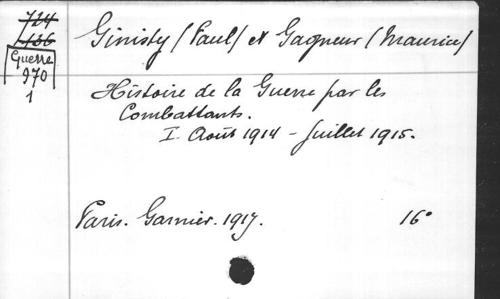 724
436
Guerre
970
1
Ginisty (Paul) et Gagneur (Maurice)
Histoire de la Guerre par les
Combattants.
I. Août 1914 - Juillet 1915.
Paris. Garnier. 1917. 16°